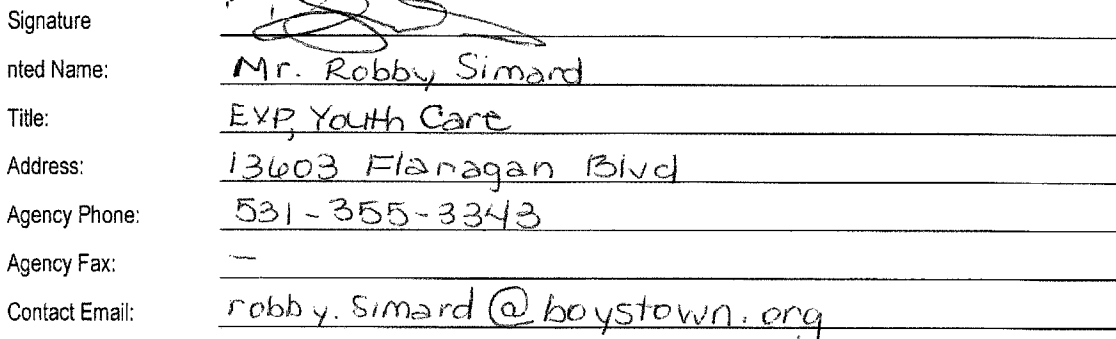 Signature
nted Name: Mr. Robby Simard
Title: EVP, Youth Care
Address: 13603 Flanagan Blvd
Agency Phone: 531-355-3343
Agency Fax: —
Contact Email: robby.simard@boystown.org